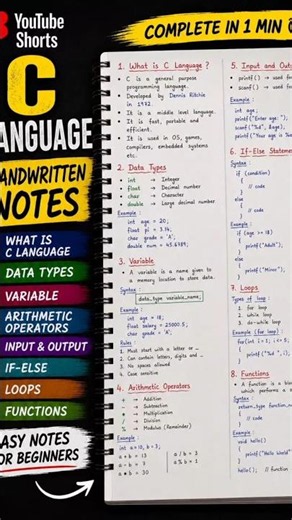 YouTube
Shorts
C
LANGUAGE
HANDWRITTEN
NOTES
WHAT IS
C LANGUAGE
DATA TYPES
VARIABLE
ARITHMETIC
OPERATORS
INPUT & OUTPUT
IF-ELSE
LOOPS
FUNCTIONS
EASY NOTES
FOR BEGINNERS
COMPLETE IN 1 MIN
1. What is C Language ?
• C is a general purpose
programming language.
• Developed by Dennis Ritchie
in 1972
• It is a middle level language.
• It is fast, portable and
efficient.
• It is used in OS, games,
compilers, embedded systems
etc.
2. Data Types
• int → Integer
• float → Decimal number
• char → Character
• double → Large decimal number
Example
int age = 20;
float pi = 3.14;
char grade = 'A';
double num = 45.6789;
3. Variable
• A variable is a name given to
a memory location to store data.
Syntax :
data_type variable_name;
Example :
int age = 18;
float salary = 25000.5;
char grade = 'A';
Rules :
1. Must start with a letter or _
2. Can contain letters, digits and _
3. No spaces allowed
4. Case sensitive
4. Arithmetic Operators
+ → Addition
- → Subtraction
* → Multiplication
/ → Division
% → Modulus (Remainder)
Example :
int a = 10, b = 3;
a + b = 13
a - b = 7
a * b = 30
a / b = 3
a % b = 1
5. Input and Outp
• printf() → used fo
• scanf() → used for
Example :
int age;
printf("Enter age: ");
scanf("%d", &age);
printf("Your age is %d
6. If-Else Stateme
Syntax :
if (condition)
{
// code
}
else
{
// code
}
Example :
if (age >= 18)
printf("Adult");
else
printf("Minor");
7. Loops
Types of loop :
1. for loop
2. while loop
3. do-while loop
Example (for loop) :
for(int i = 1; i <= 5;
{
printf("%d ", i);
}
8. Functions
• A function is a bloc
which performs a
Syntax :
return_type function_na
{
// code
}
Example :
void hello()
{
printf("Hello World"
}
hello(); // function